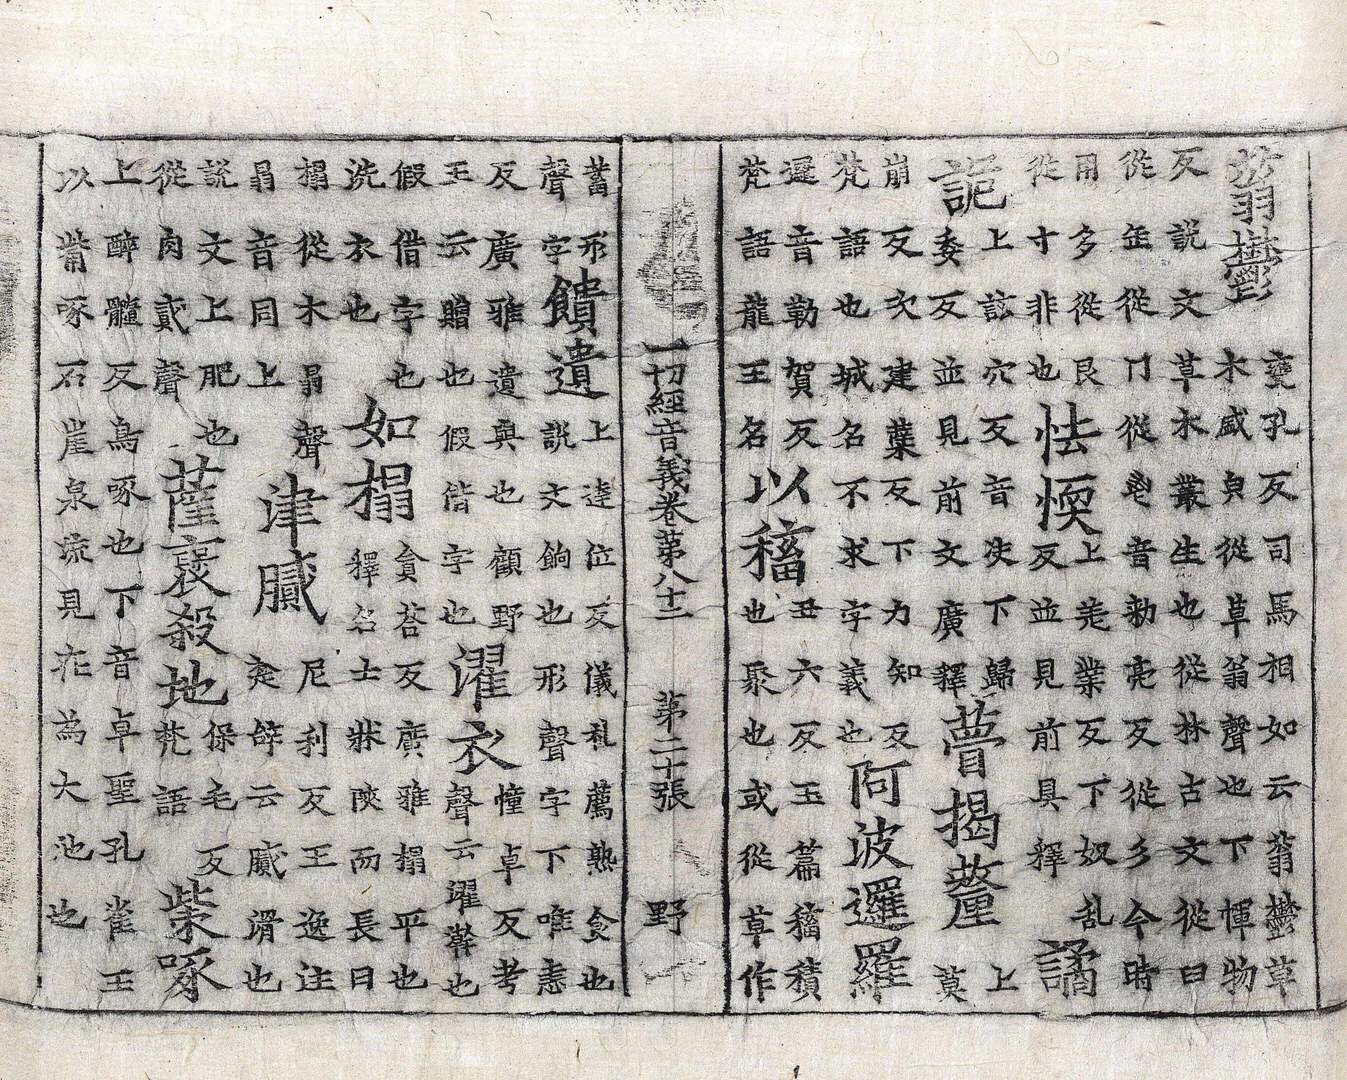 蓊欝甕孔反司馬相如云蓊欝草
木盛皃從草翁聲也下惲物
反説文草木叢生也從林古文從臼
從缶從冂從鬯音勅亮反從彡今時
用多從艮
從寸非也怯愞上羌業反下奴乱
反並見前具釋譎
詭上該穴反音決下歸
委反並見前文廣釋瞢揭釐上
莫
崩反次建蘖反下力知反
梵語也城名不求字義也阿波邏羅
邏音勒賀反
梵語龍王名以稸丑六反玉篇稸積
也聚也或從草作
一切經音義卷第八十二 第二十張 野
蓄形
聲字饋遺上逵位反儀礼薦熟食也
説文餉也形聲字下唯恚
反廣雅遺與也顧野
王云贈也假偕字也濯衣憧卓反考
聲云濯澣也
假借字也
洗衣也如榻貪荅反廣雅榻平也
釋名士牀陜而長曰
榻從木弱聲
弱音同上津膩尼利反王逸注
楚辞云膩滑也
説文上肥也
從肉貳聲薩裒殺地保毛反
梵語柴啄
上醉髓反鳥啄也下音卓聖孔雀王
以觜啄石崖泉流見在為大池也